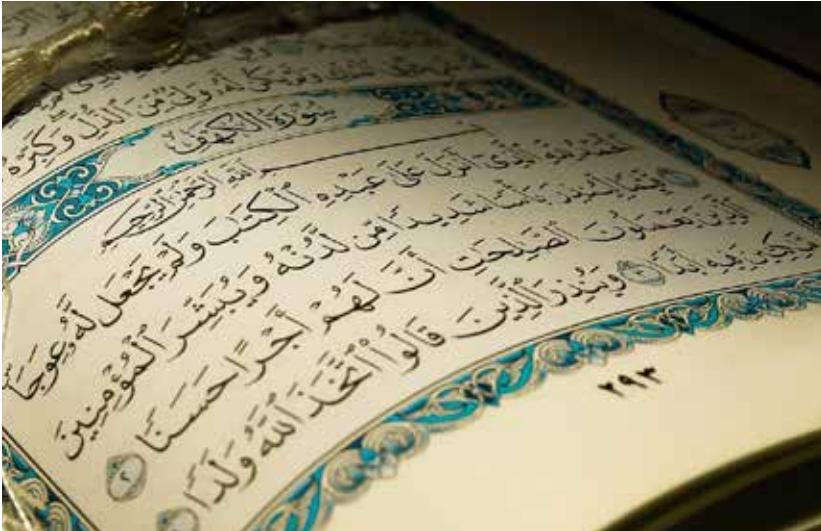 وَلَمْ يَكُن لَّهُۥ وَلِىٌّ مِّنَ ٱلذُّلِّ وَكَبِّرْهُ
سُورَةُ الكَهْفِ
ٱللَّهِ ٱلرَّحْمَٰنِ ٱلرَّحِيمِ
ٱلْحَمْدُ لِلَّهِ ٱلَّذِىٓ أَنزَلَ عَلَىٰ عَبْدِهِ ٱلْكِتَٰبَ وَلَمْ يَجْعَل لَّهُۥ عِوَجَا ١
قَيِّمًا لِّيُنذِرَ بَأْسًا شَدِيدًا مِّن لَّدُنْهُ وَيُبَشِّرَ ٱلْمُؤْمِنِينَ
ٱلَّذِينَ يَعْمَلُونَ ٱلصَّٰلِحَٰتِ أَنَّ لَهُمْ أَجْرًا حَسَنًا ٢
مَّٰكِثِينَ فِيهِ أَبَدًا ٣ وَيُنذِرَ ٱلَّذِينَ قَالُوا۟ ٱتَّخَذَ ٱللَّهُ وَلَدًا
٢٩٣